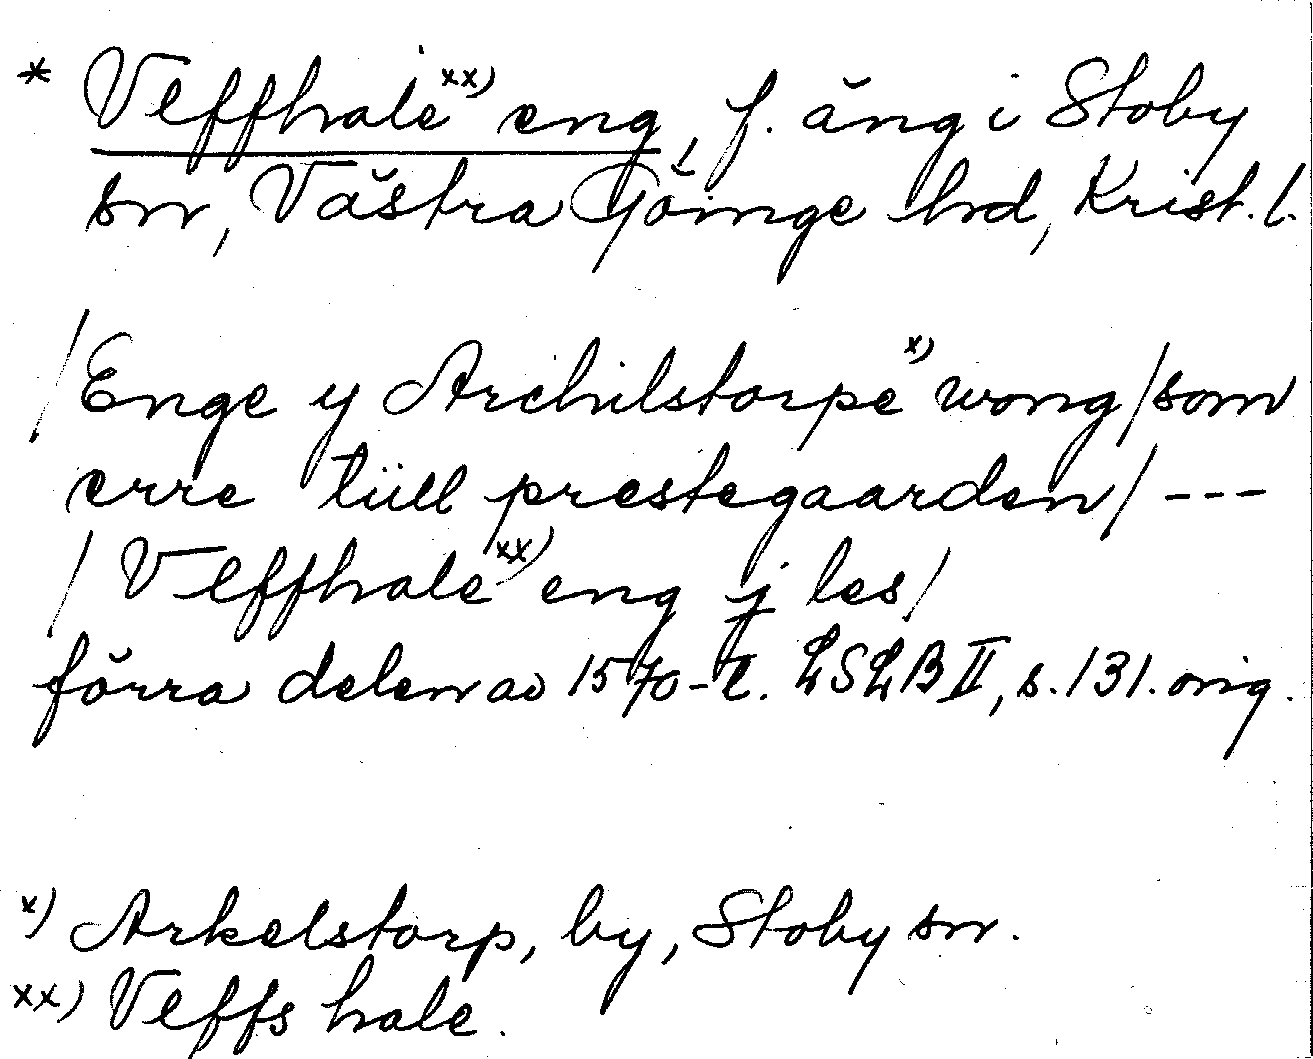 * Vleffhale xx) eng, f. äng i Stoby
sn, Västra Göinge hd, Krist. l.
/Enge y Archilstorpe x) wong/som
erre tüll prestegaarden/ ---
/Vleffhale xx) eng j les/
förra delen av 1570-t. LSLB II, s. 131. orig.
x) Arkelstorp, by, Stoby sn.
xx) Vleffs hale.